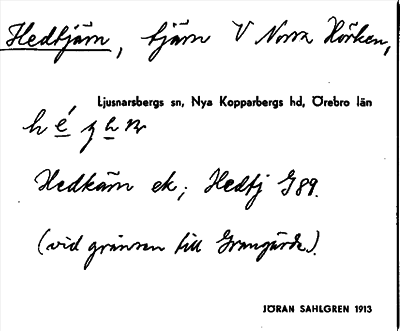 Hedtjärn, tjärn V Norra Hörken,
Ljusnarsbergs sn, Nya Kopparbergs hd, Örebro län
Hedkärn ek; Hedtj G89.
(vid gränsen till Grangärde).
JÖRAN SAHLGREN 1913